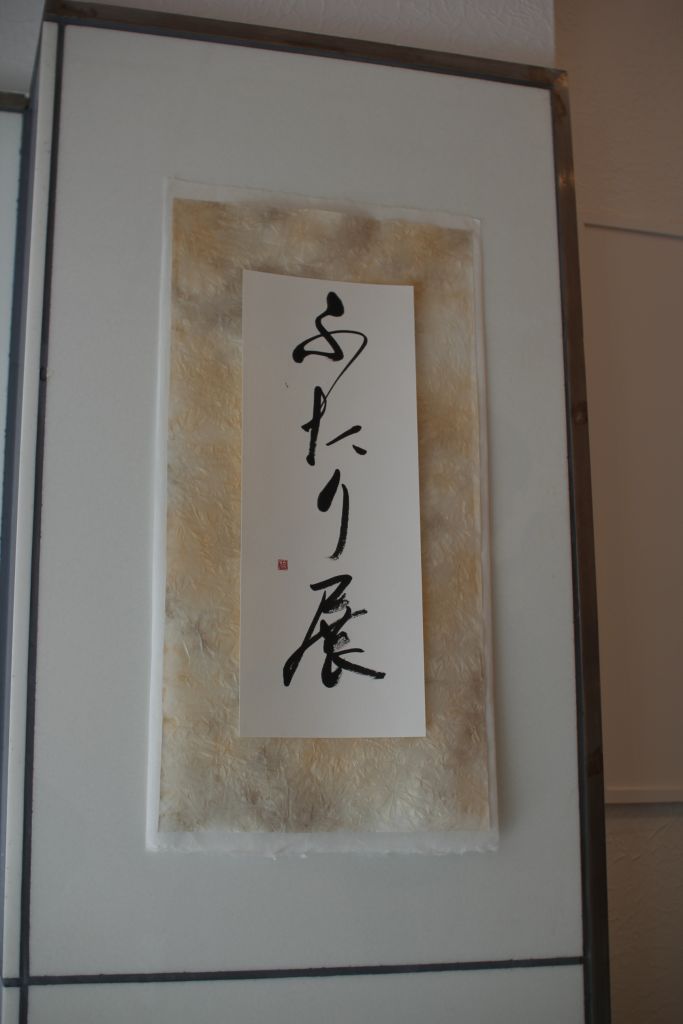 ふたり展